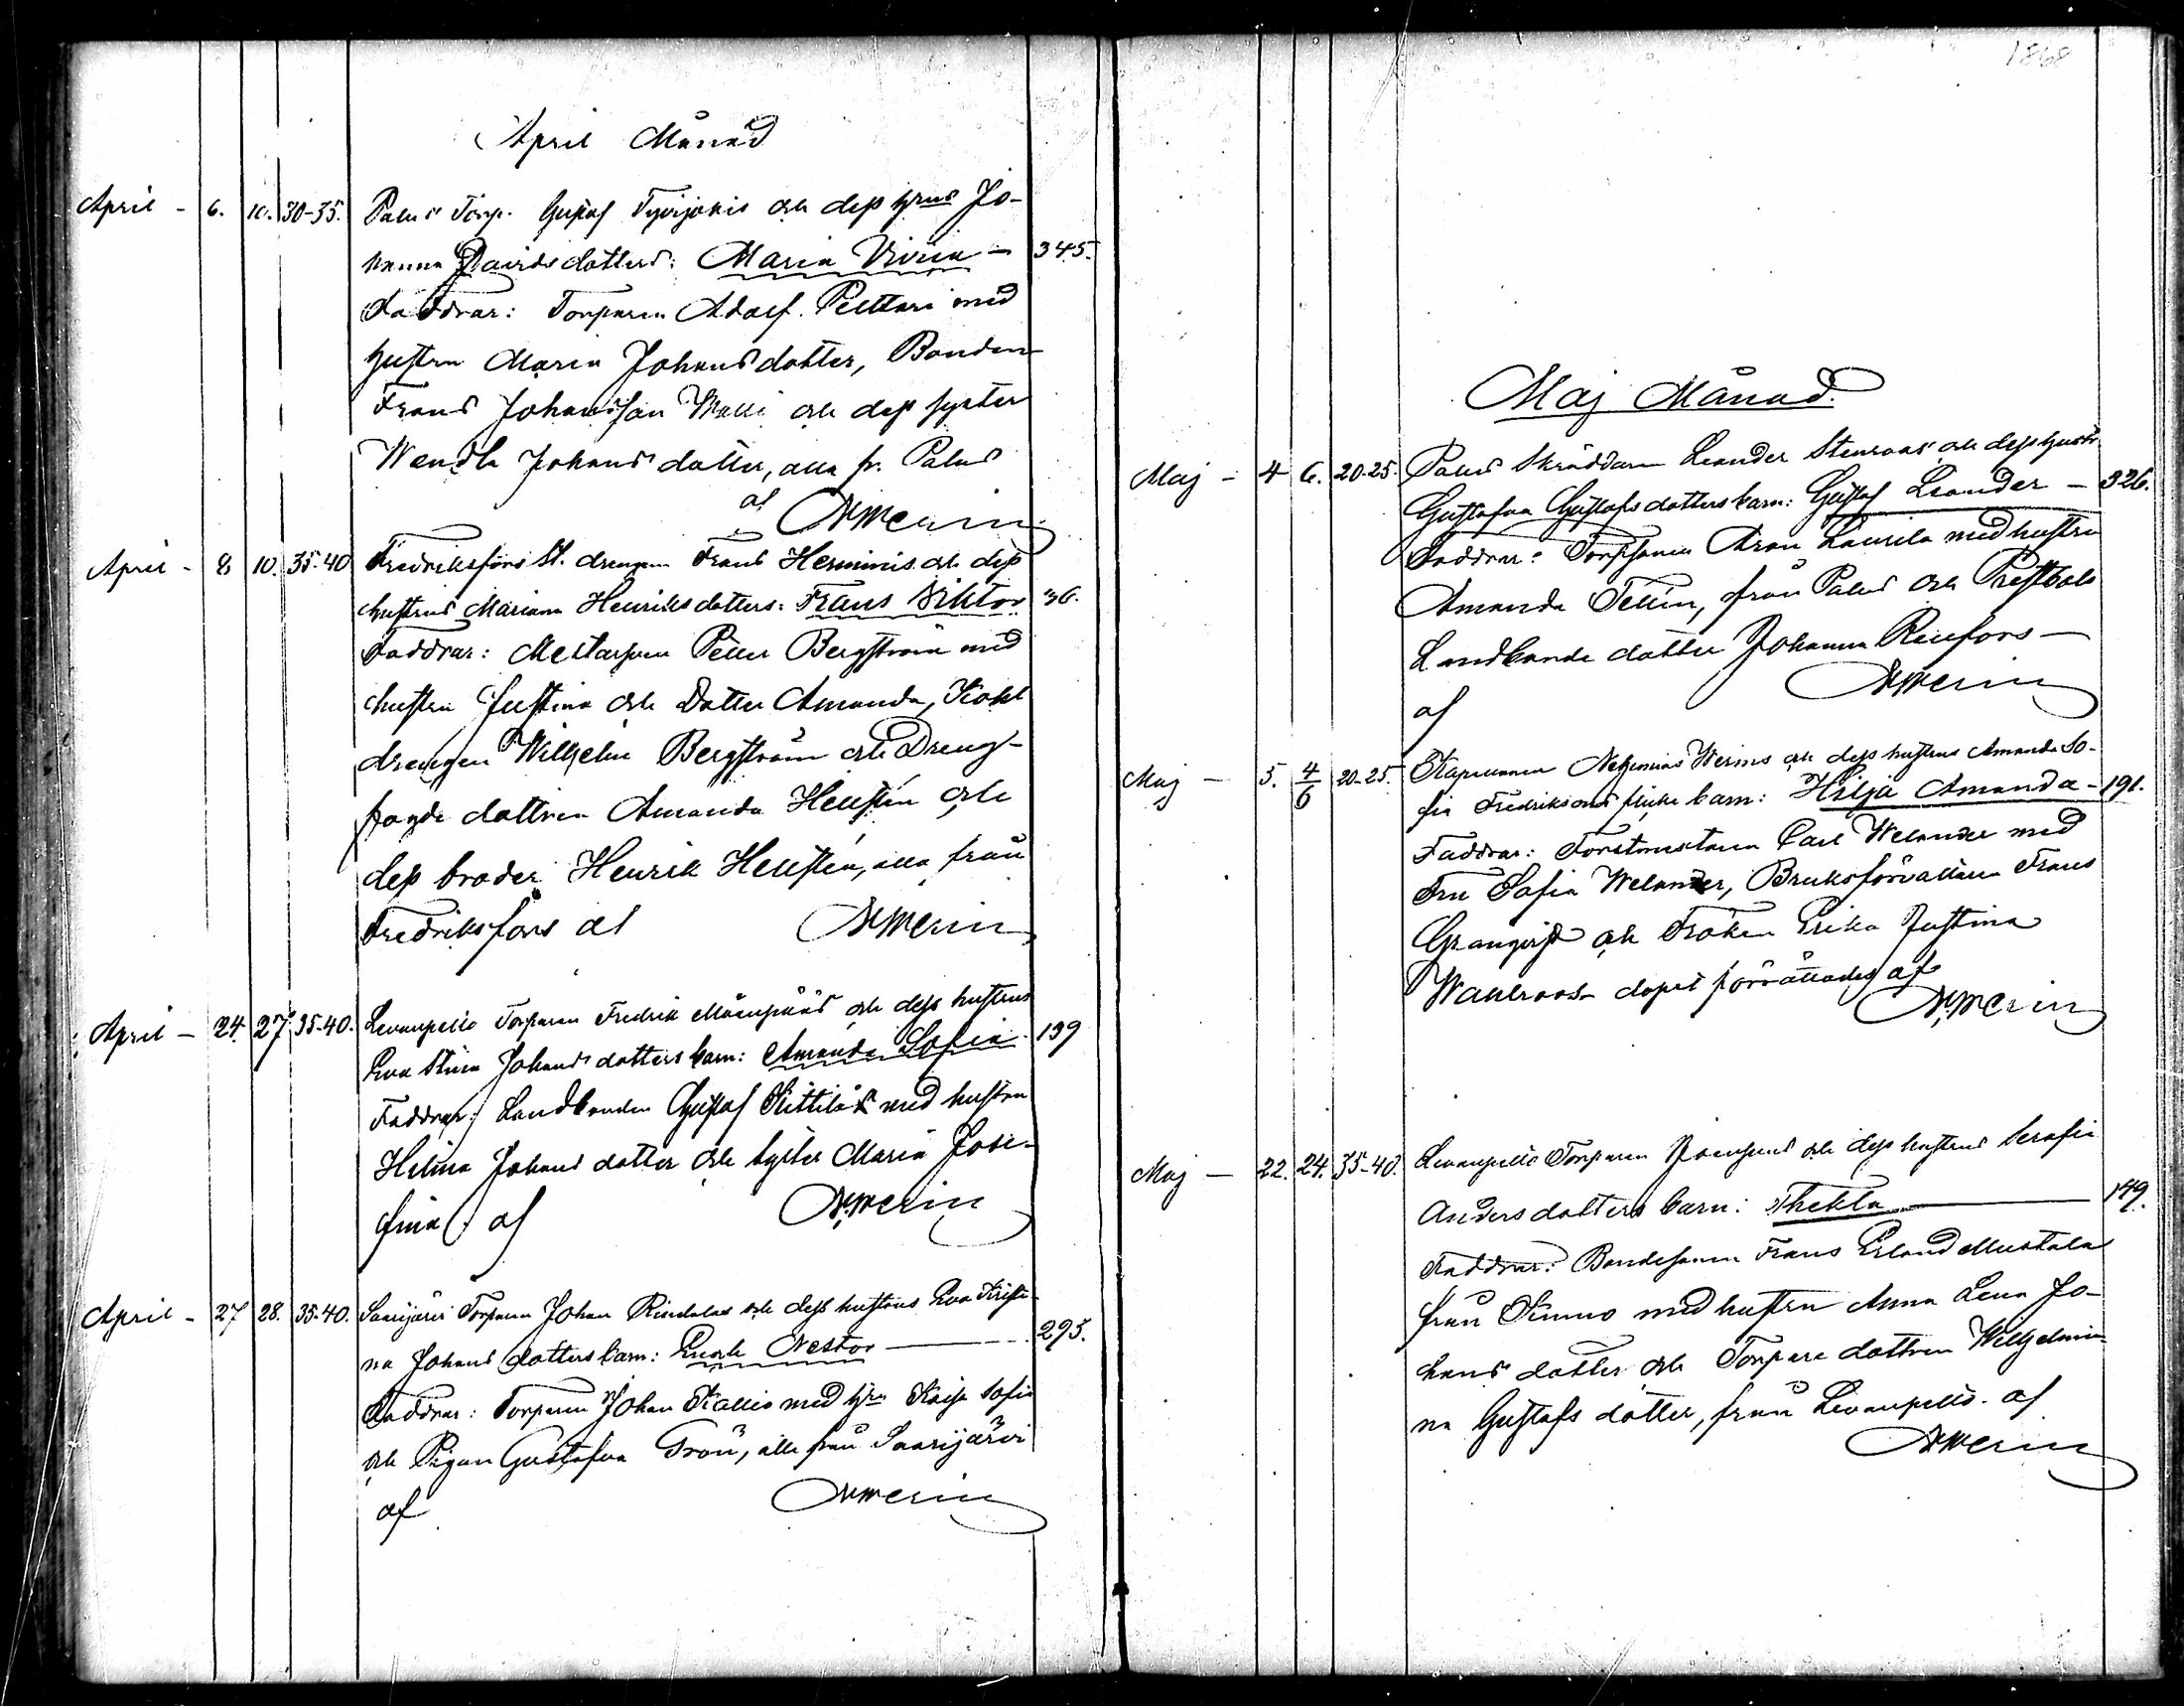 1868
April Månad
April - 6. 10. 30-35. Palus Torp. Gustaf Tyvijokis och dess hrus Jo-
hanna Davidsdotters: Maria Viviia - 345.
Faddrar: Torparen Adolf Pelttari med
hustru Maria Johansdotter, Bonden
Frans Johansson Walli och dess syster
Wendla Johansdotter, alla fr. Palus
af
April - 8 10. 35-40 Fredriksfors St. drengen Frans Herminis och dess
hustrus Mariana Henriksdotters: Frans Viktor 36.
Faddrar: Mestaren Petter Bergström med
hustru Justina och Dotter Amanda, Kohl
drengen Wilhelm Bergström och Dreng-
dottren Amanda Hellstén och
dess broder Henrik Hellstén, alla från
Fredriksfors af
April - 24. 27 35-40. Levanpelto Torparen Fredrik Mäenpääs och dess hustrus
Eva Stina Johansdotters barn: Amanda Sofia 139
Faddrar: Landbonden Gustaf Kittilä med hustru
Hilma Johansdotter och syster Maria Jose-
fina af
April - 27 28. 35-40. Saarijärvi Torparen Johan Rindalas och dess hustrus Eva Kristi-
na Johansdotters barn: Enok Nestor 295.
Faddrar: Torparen Johan Kallio med hru Kaisa Sofia
och Pigan Gustafva Grön, alla från Saarijärvi
af
Maj Månad.
Maj - 4 6. 20-25. Palus Skräddaren Leander Stenroos och dess hustr.
Gustafva Gustafsdotters barn: Gustaf Leander - 326.
Faddrar: Torpsonen Aron Laurila med hustru
Amanda Tellin, från Palus och Prestbols
Landbonde dotter Johanna Renfors -
af
Maj - 5. 4/6 20-25. Nehemias Werins och dess hustrus Amanda So-
fia Fredriksons flicke barn: Hilja Amanda - 191.
Faddrar: Forstmestaren Carl Welander med
Fru Sofia Welander, Bruksförvaltaren Frans
Granqvist och Fröken Erika Justina
Wahlroos dopet förrättades af
Maj - 22. 24. 35-40. Levanpelto Torparen och dess hustrus Serafia
Andersdotters barn: Thekla 149.
Faddrar: Bondesonen Frans Erland Mustala
från Kinno med hustru Anna Lena Jo-
hansdotter och Torpare dottren Wilhelmi-
na Gustafsdotter, från Levanpelto. af